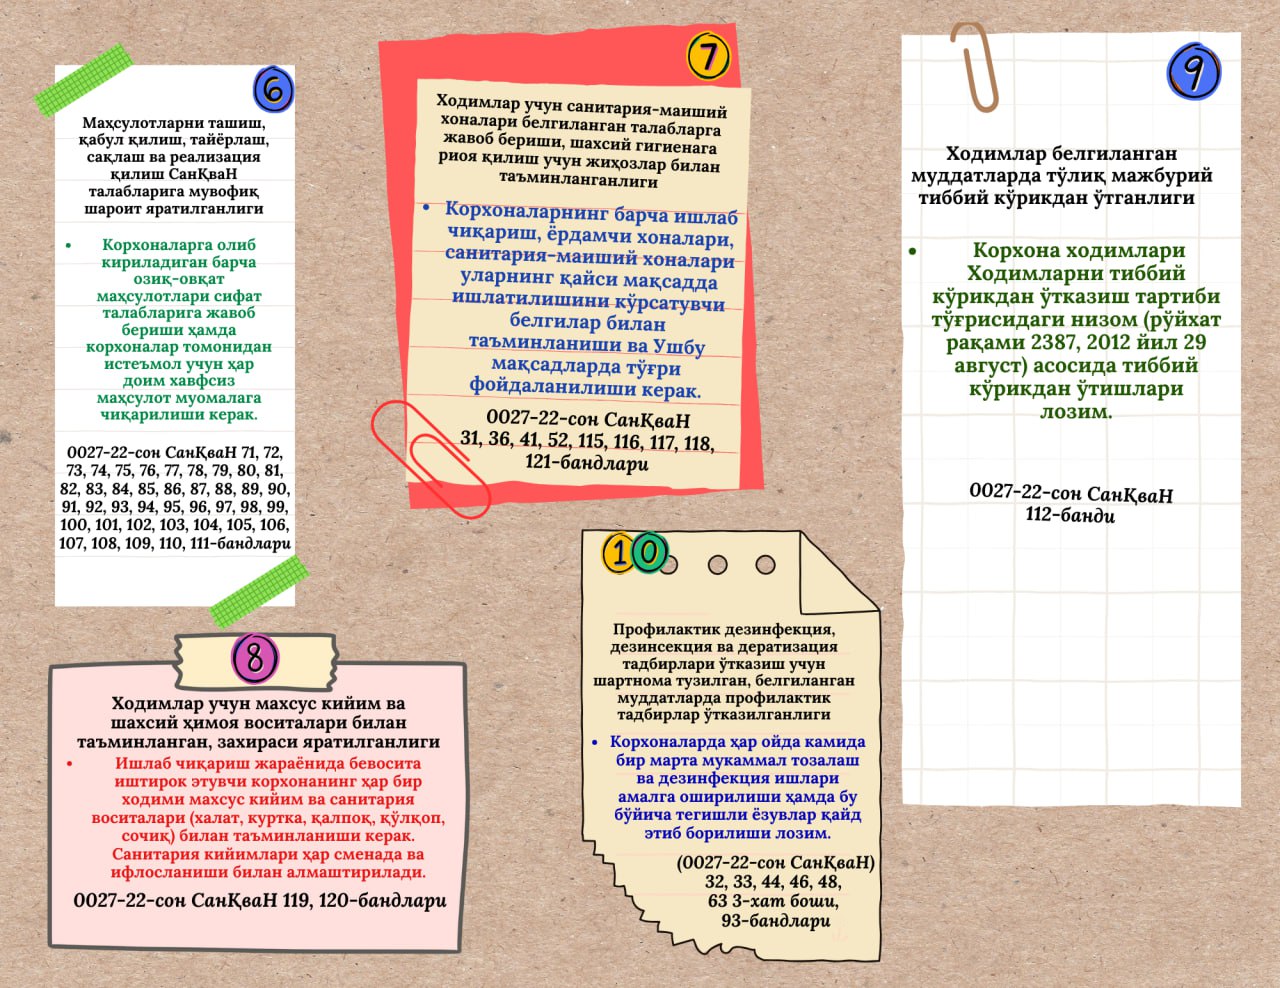 6
Маҳсулотларни ташиш,
қабул қилиш, тайёрлаш,
сақлаш ва реализация
қилиш СанҚваН
талабларига мувофиқ
шароит яратилганлиги
• Корхоналарга олиб
кириладиган барча
озиқ-овқат
маҳсулотлари сифат
талабларига жавоб
бериши ҳамда
корхоналар томонидан
истеъмол учун ҳар
доим хавфсиз
маҳсулот муомалага
чиқарилиши керак.
0027-22-сон СанҚваН 71, 72,
73, 74, 75, 76, 77, 78, 79, 80, 81,
82, 83, 84, 85, 86, 87, 88, 89, 90,
91, 92, 93, 94, 95, 96, 97, 98, 99,
100, 101, 102, 103, 104, 105, 106,
107, 108, 109, 110, 111-бандлари
7
Ходимлар учун санитария-маиший
хоналари белгиланган талабларга
жавоб бериши, шахсий гигиенага
риоя қилиш учун жиҳозлар билан
таъминланганлиги
• Корхоналарнинг барча ишлаб
чиқариш, ёрдамчи хоналари,
санитария-маиший хоналари
уларнинг қайси мақсадда
ишлатилишини кўрсатувчи
белгилар билан
таъминланиши ва Ушбу
мақсадларда тўғри
фойдаланилиши керак.
0027-22-сон СанҚваН
31, 36, 41, 52, 115, 116, 117, 118,
121-бандлари
8
Ходимлар учун махсус кийим ва
шахсий ҳимоя воситалари билан
таъминланган, захираси яратилганлиги
• Ишлаб чиқариш жараёнида бевосита
иштирок этувчи корхонанинг ҳар бир
ходими махсус кийим ва санитария
воситалари (халат, куртка, қалпоқ, қўлқоп,
сочиқ) билан таъминланиши керак.
Санитария кийимлари ҳар сменада ва
ифлосланиши билан алмаштирилади.
0027-22-сон СанҚваН 119, 120-бандлари
9
Ходимлар белгиланган
муддатларда тўлиқ мажбурий
тиббий кўрикдан ўтганлиги
• Корхона ходимлари
Ходимларни тиббий
кўрикдан ўтказиш тартиби
тўғрисидаги низом (рўйхат
рақами 2387, 2012 йил 29
август) асосида тиббий
кўрикдан ўтишлари
лозим.
0027-22-сон СанҚваН
112-банди
10
Профилактик дезинфекция,
дезинсекция ва дератизация
тадбирлари ўтказиш учун
шартнома тузилган, белгиланган
муддатларда профилактик
тадбирлар ўтказилганлиги
• Корхоналарда ҳар ойда камида
бир марта мукаммал тозалаш
ва дезинфекция ишлари
амалга оширилиши ҳамда бу
бўйича тегишли ёзувлар қайд
этиб борилиши лозим.
(0027-22-сон СанҚваН)
32, 33, 44, 46, 48,
63 3-хат боши,
93-бандлари